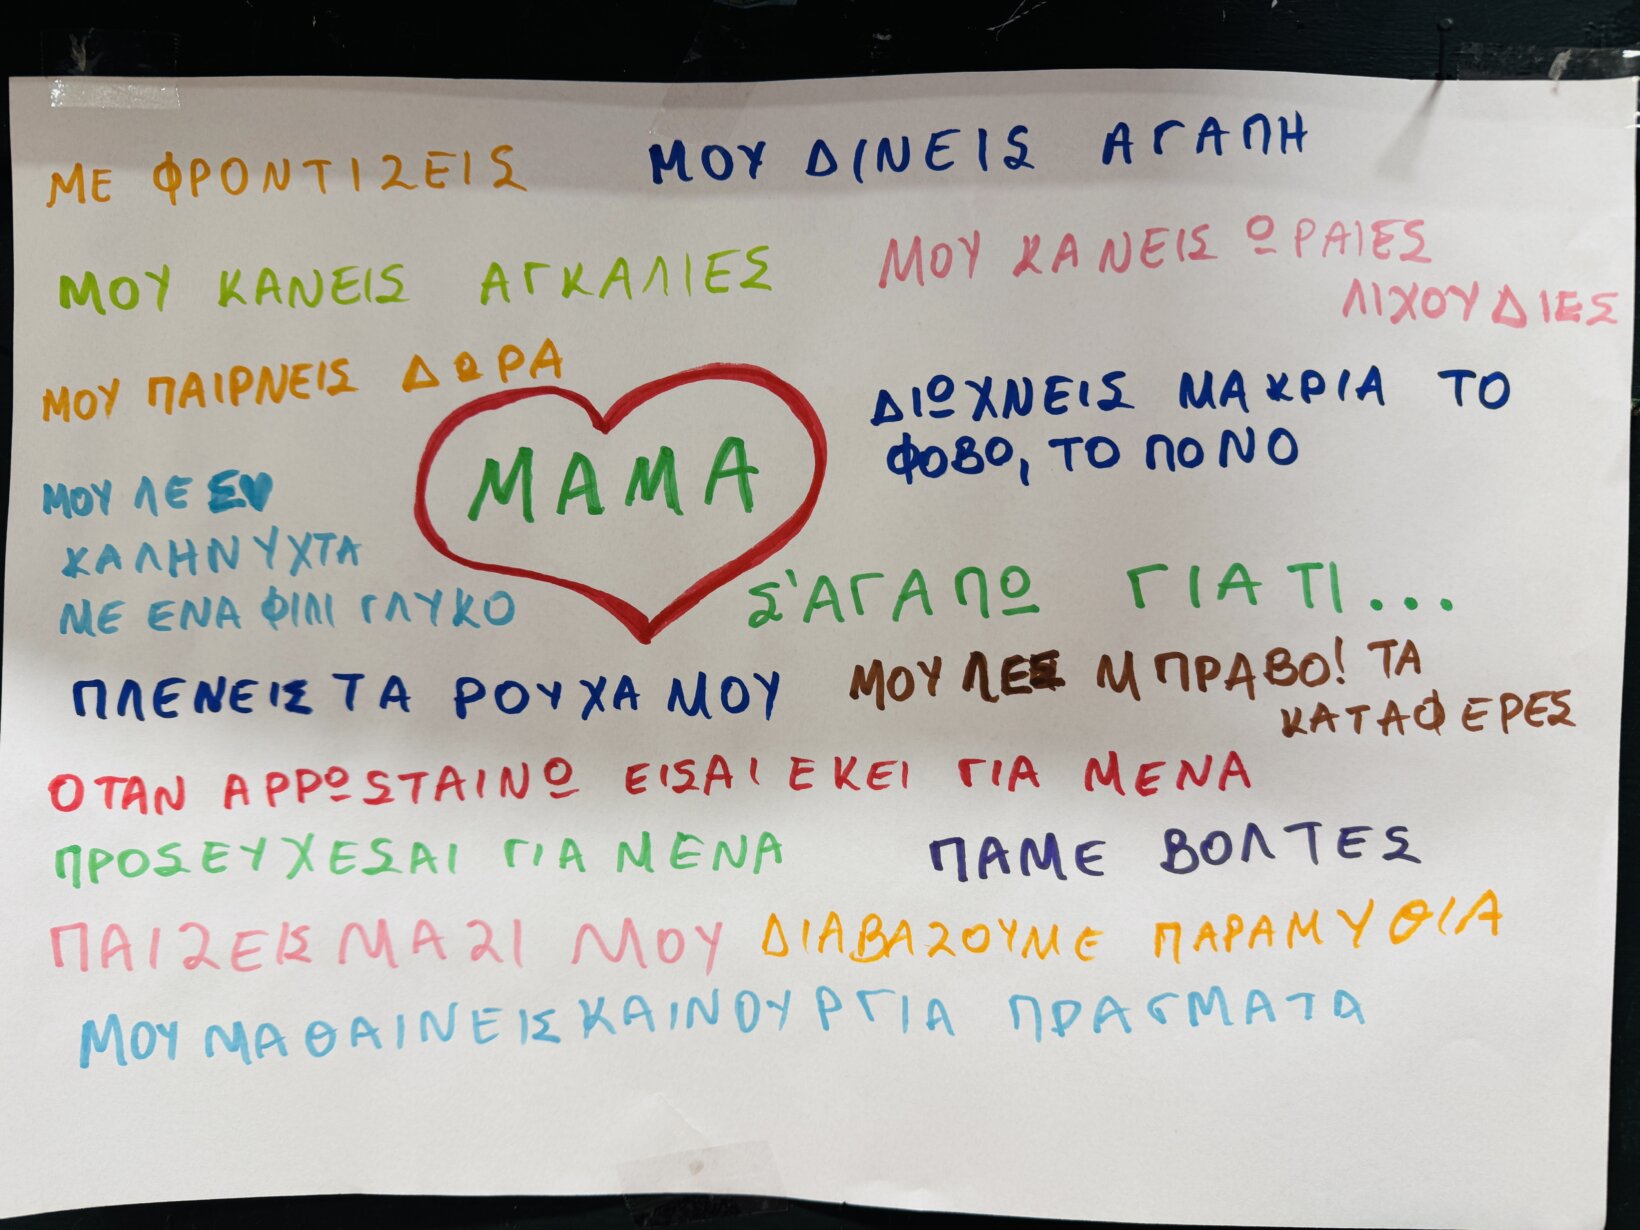 ΜΕ ΦΡΟΝΤΙΖΕΙΣ
ΜΟΥ ΔΙΝΕΙΣ ΑΓΑΠΗ
ΜΟΥ ΚΑΝΕΙΣ ΑΓΚΑΛΙΕΣ
ΜΟΥ ΚΑΝΕΙΣ ΩΡΑΙΕΣ
ΛΙΧΟΥΔΙΕΣ
ΜΟΥ ΠΑΙΡΝΕΙΣ ΔΩΡΑ
ΜΑΜΑ
ΔΙΩΧΝΕΙΣ ΜΑΚΡΙΑ ΤΟ
ΦΟΒΟ, ΤΟ ΠΟΝΟ
ΜΟΥ ΛΕΣ
ΚΑΛΗΝΥΧΤΑ
ΜΕ ΕΝΑ ΦΙΛΙ ΓΛΥΚΟ
Σ'ΑΓΑΠΩ ΓΙΑΤΙ...
ΠΛΕΝΕΙΣ ΤΑ ΡΟΥΧΑ ΜΟΥ
ΜΟΥ ΛΕΣ ΜΠΡΑΒΟ! ΤΑ
ΚΑΤΑΦΕΡΕΣ
ΟΤΑΝ ΑΡΡΩΣΤΑΙΝΩ ΕΙΣΑΙ ΕΚΕΙ ΓΙΑ ΜΕΝΑ
ΠΡΟΣΕΥΧΕΣΑΙ ΓΙΑ ΜΕΝΑ
ΠΑΜΕ ΒΟΛΤΕΣ
ΠΑΙΖΕΙΣ ΜΑΖΙ ΜΟΥ
ΔΙΑΒΑΖΟΥΜΕ ΠΑΡΑΜΥΘΙΑ
ΜΟΥ ΜΑΘΑΙΝΕΙΣ ΚΑΙΝΟΥΡΓΙΑ ΠΡΑΓΜΑΤΑ